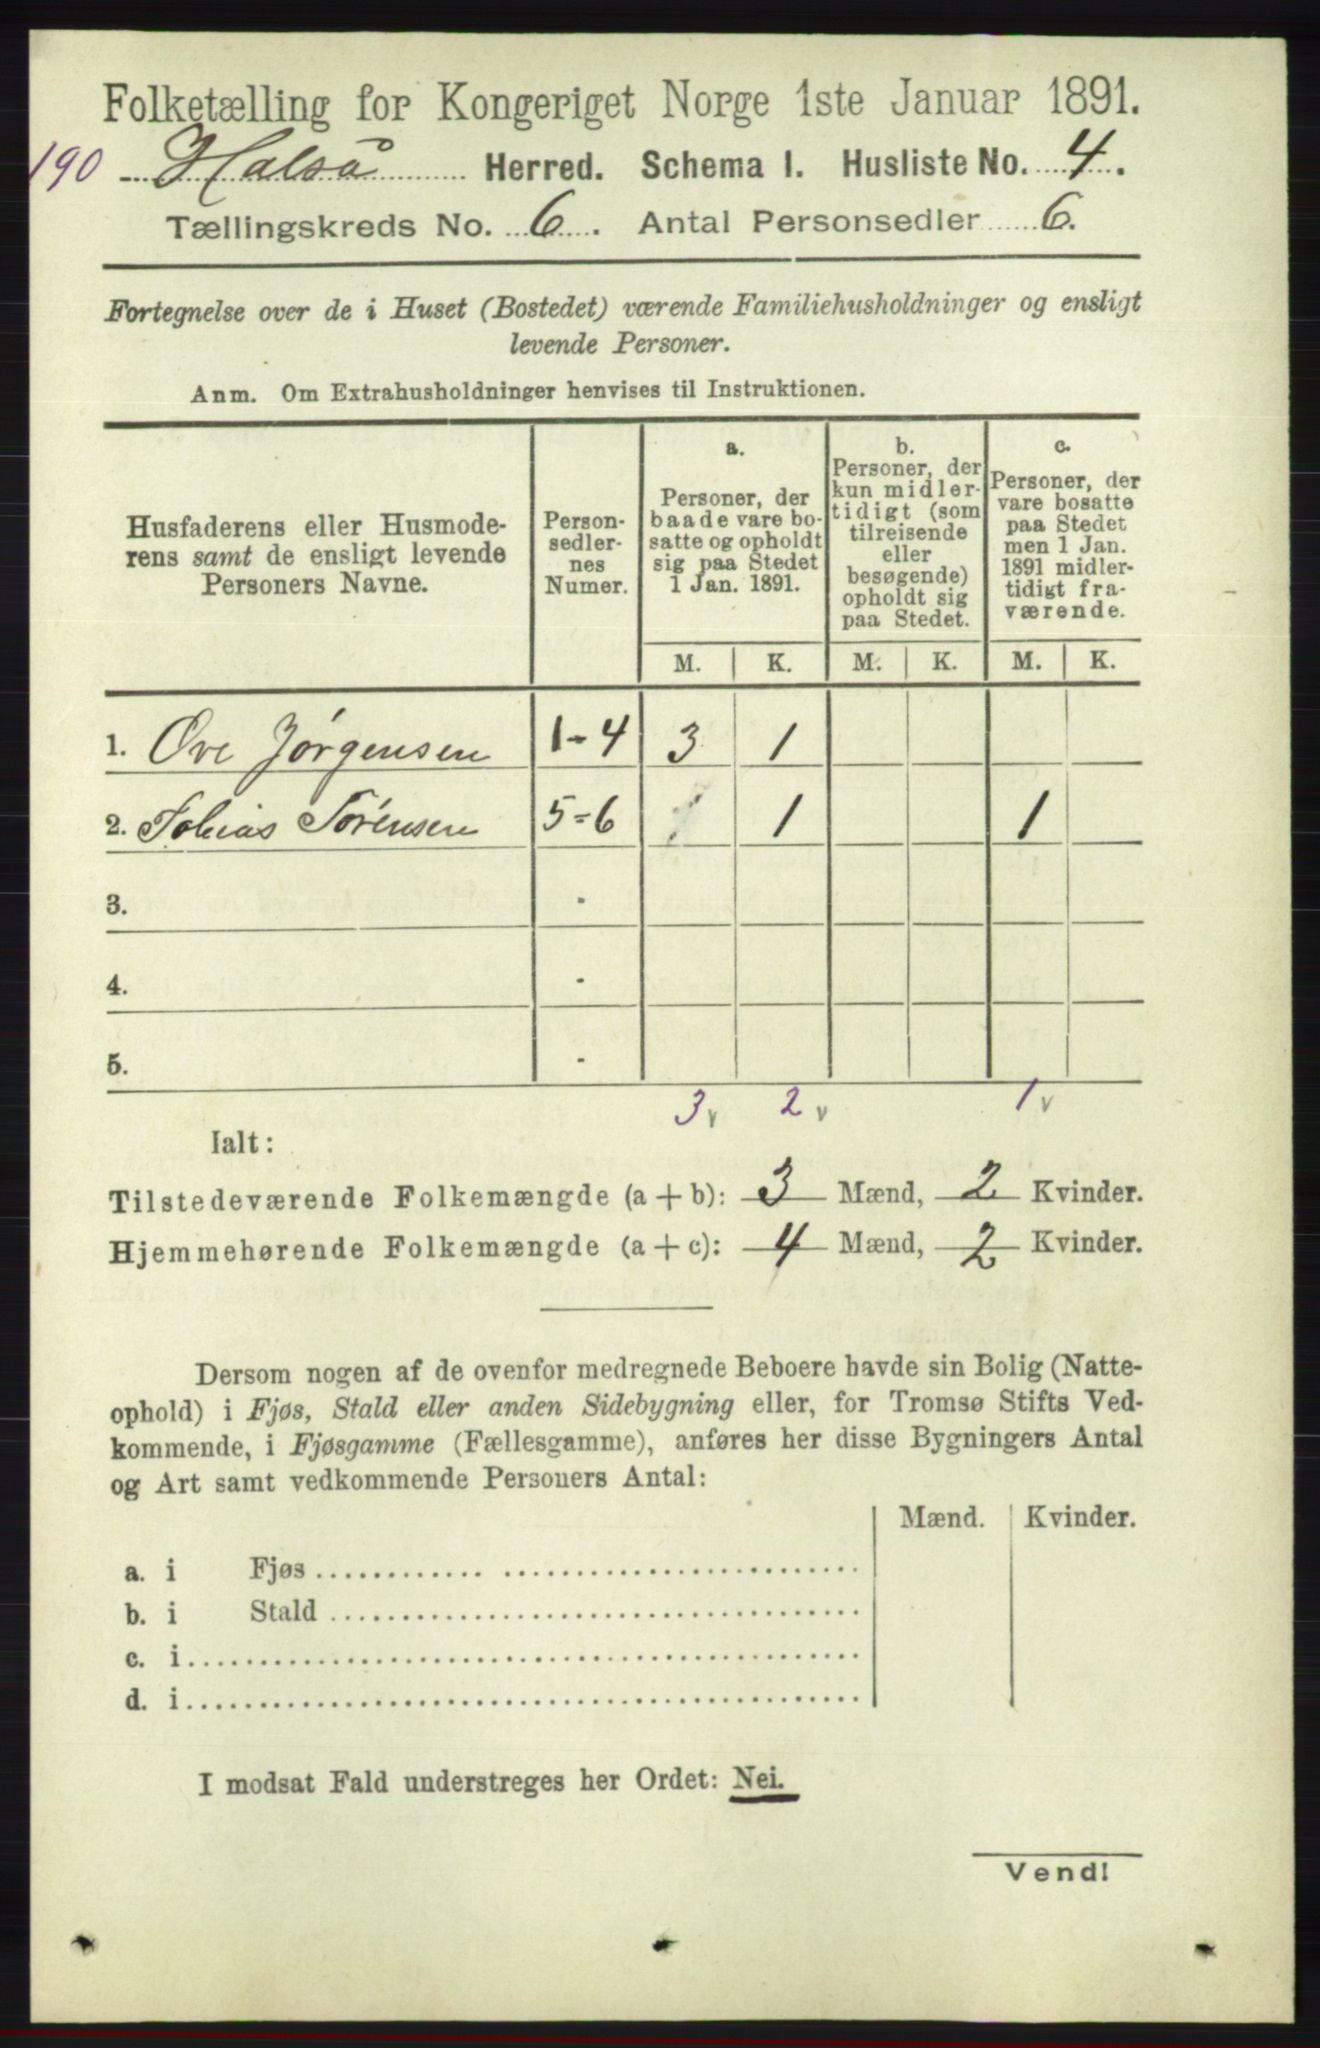 Folketælling for Kongeriget Norge 1ste Januar 1891.
190 Halså Herred. Schema I. Husliste No. 4.
Tællingskreds No. 6. Antal Personsedler 6.
Fortegnelse over de i Huset (Bostedet) værende Familiehusholdninger og ensligt
levende Personer.
Anm. Om Extrahusholdninger henvises til Instruktionen.
Husfaderens eller Husmode-
rens samt de ensligt levende
Personers Navne.
Person-
sedler-
nes
Numer.
a.
Personer, der
baade vare bo-
satte og opholdt
sig paa Stedet
1 Jan. 1891.
b.
Personer, der
kun midler-
tidigt (som
tilreisende
eller
besøgende)
opholdt sig
paa Stedet.
c.
Personer, der
vare bosatte
paa Stedet
men 1 Jan.
1891 midler-
tidigt fra-
værende.
M. K. M. K. M. K.
1. Ove Jørgensen 1-4 3 1
2. Tobias Sørensen 5-6 1 1
3. -
4. -
5. -
3 v 2 v 1 v
Ialt:
Tilstedeværende Folkemængde (a + b): 3 Mænd, 2 Kvinder.
Hjemmehørende Folkemængde (a + c): 4 Mænd, 2 Kvinder.
Dersom nogen af de ovenfor medregnede Beboere havde sin Bolig (Natte-
ophold) i Fjøs, Stald eller anden Sidebygning eller, for Tromsø Stifts Ved-
kommende, i Fjøsgamme (Fællesgamme), anføres her disse Bygningers Antal
og Art samt vedkommende Personers Antal:
Mænd. Kvinder.
a. i Fjøs
b. i Stald
c. i
d. i
I modsat Fald understreges her Ordet: Nei.
Vend!